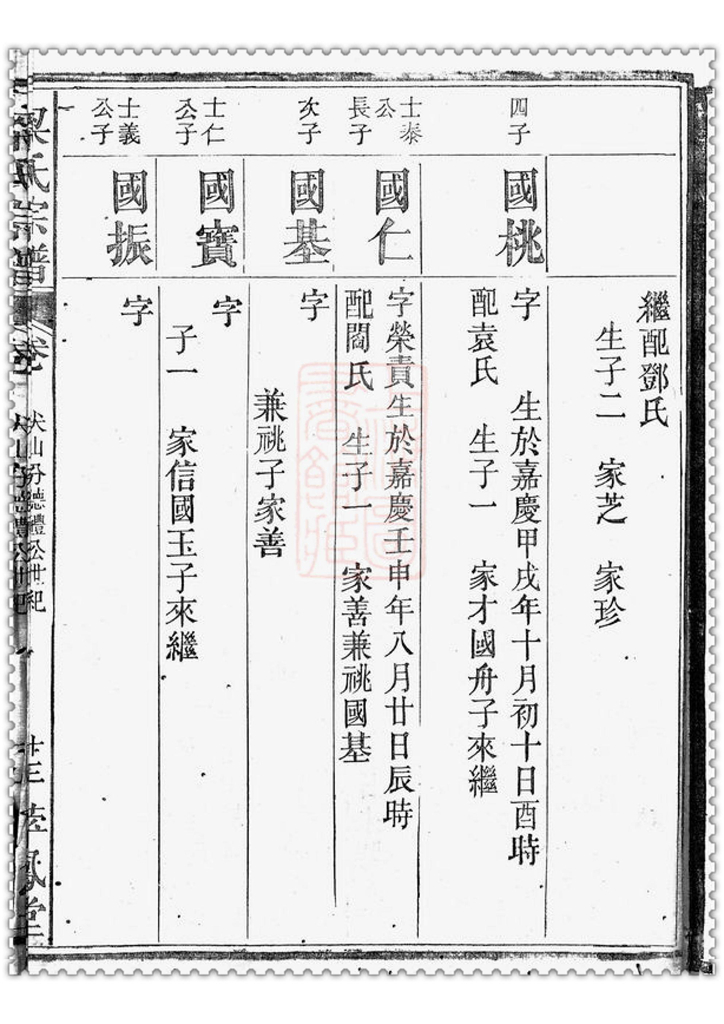 繼配鄧氏
生子二 家芝 家珍
四子
國桃
字 生於嘉慶甲戌年十月初十日酉時
配袁氏 生子一 家才國舟子來繼
士泰
公
長子
國仁
字榮責生於嘉慶壬申年八月廿日辰時
配閻氏 生子一 家善兼祧國基
次子
國基
字
兼祧子家善
士仁
公子
國寶
字
子一 家信國玉子來繼
士義
公子
國振
字
氏宗譜
卷
伏山分德禮公世紀
鳳堂